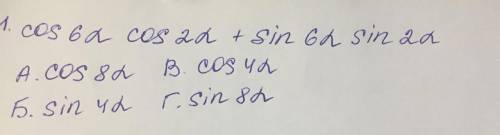 1. cos 6α cos 2α + sin 6α sin 2α
А. cos 8α В. cos 4α
Б. sin 4α Г. sin 8α